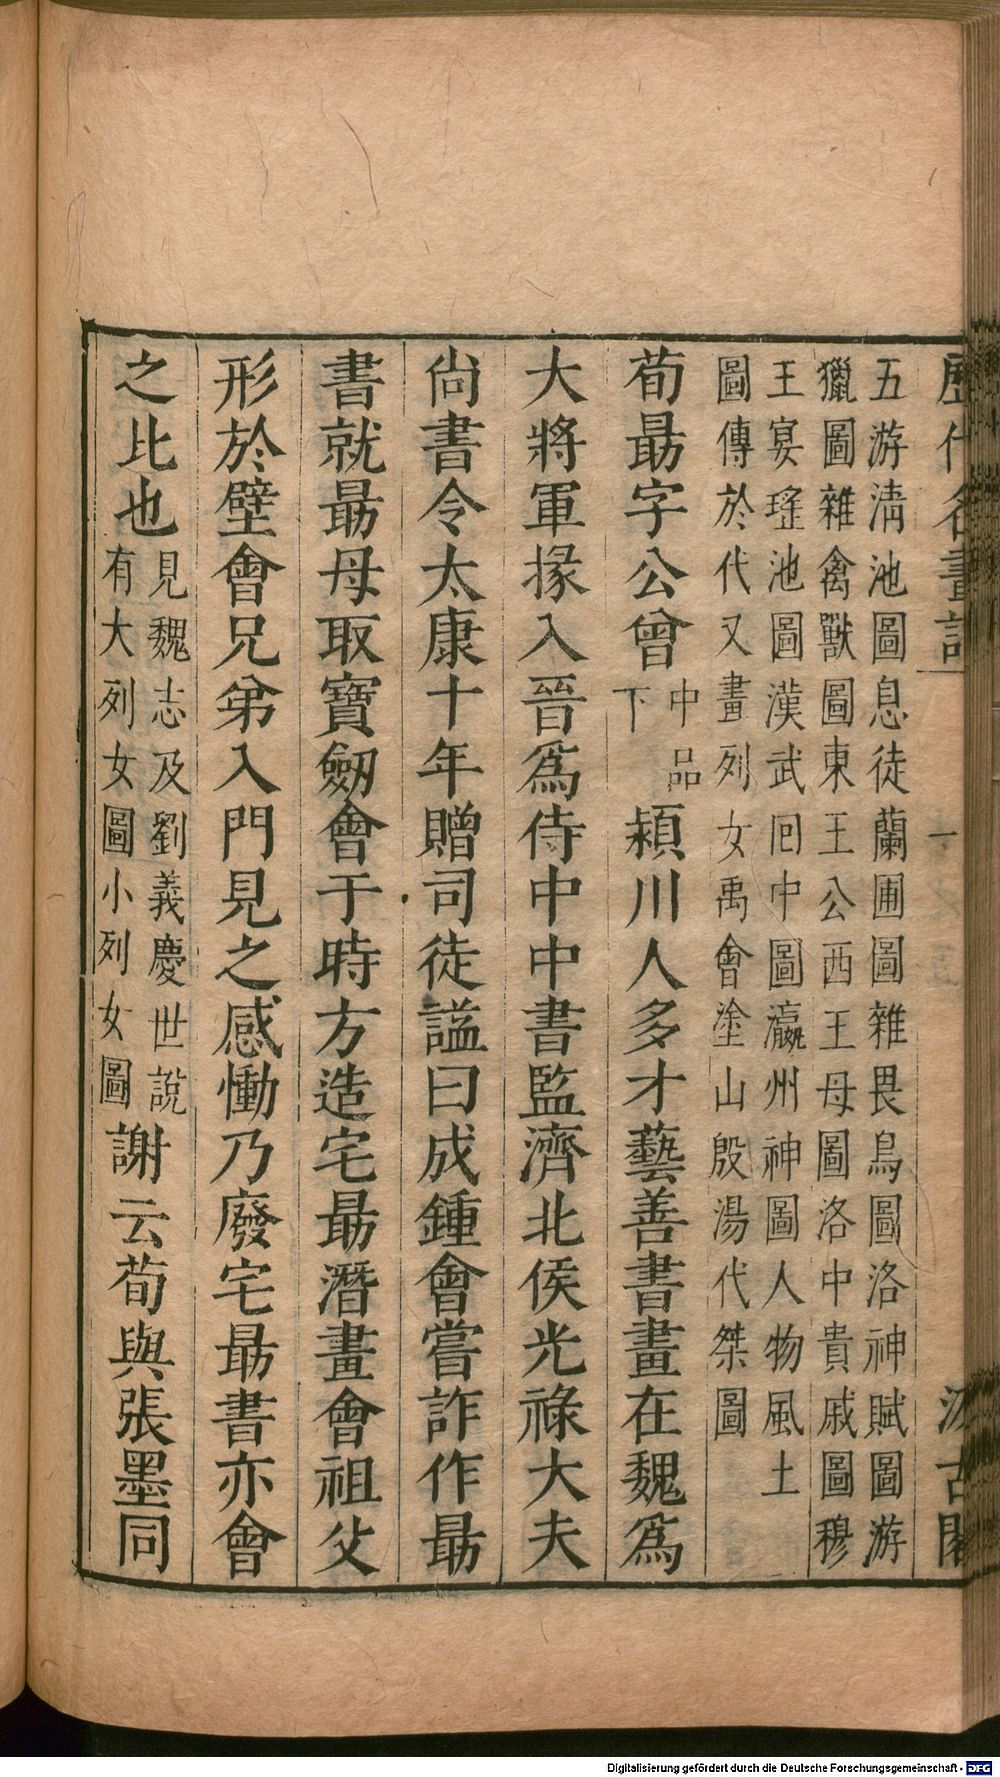 歷代名畫記 一 汲古閣
五游淸池圖息徒蘭圃圖雜畏鳥圖洛神賦圖游
獵圖雜禽獸圖東王公西王母圖洛中貴戚圖穆
王宴瑤池圖漢武囘中圖瀛州神圖人物風土
圖傳於代又畫列女禹會塗山殷湯代桀圖
荀勗字公曾中品下潁川人多才藝善書畫在魏爲
大將軍掾入晉爲侍中中書監濟北侯光祿大夫
尙書令太康十年贈司徒謚曰成鍾會嘗詐作勗
書就勗母取寶劒會于時方造宅勗潛畫會祖父
形於壁會兄弟入門見之感慟乃廢宅勗書亦會
之比也見魏志及劉義慶世說有大列女圖小列女圖謝云荀與張墨同
Digitalisierung gefördert durch die Deutsche Forschungsgemeinschaft - DFG